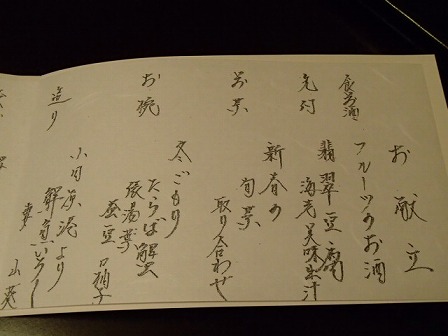 お献立
食前酒
フルーツのお酒
先付
翡翠豆腐
海老 美味出汁
お菜
新春の
旬菜
取り合わせ
お椀
冬ごもり
たらば蟹
蚕豆 口柚子
造り
小田原港より
鮮魚いろいろ